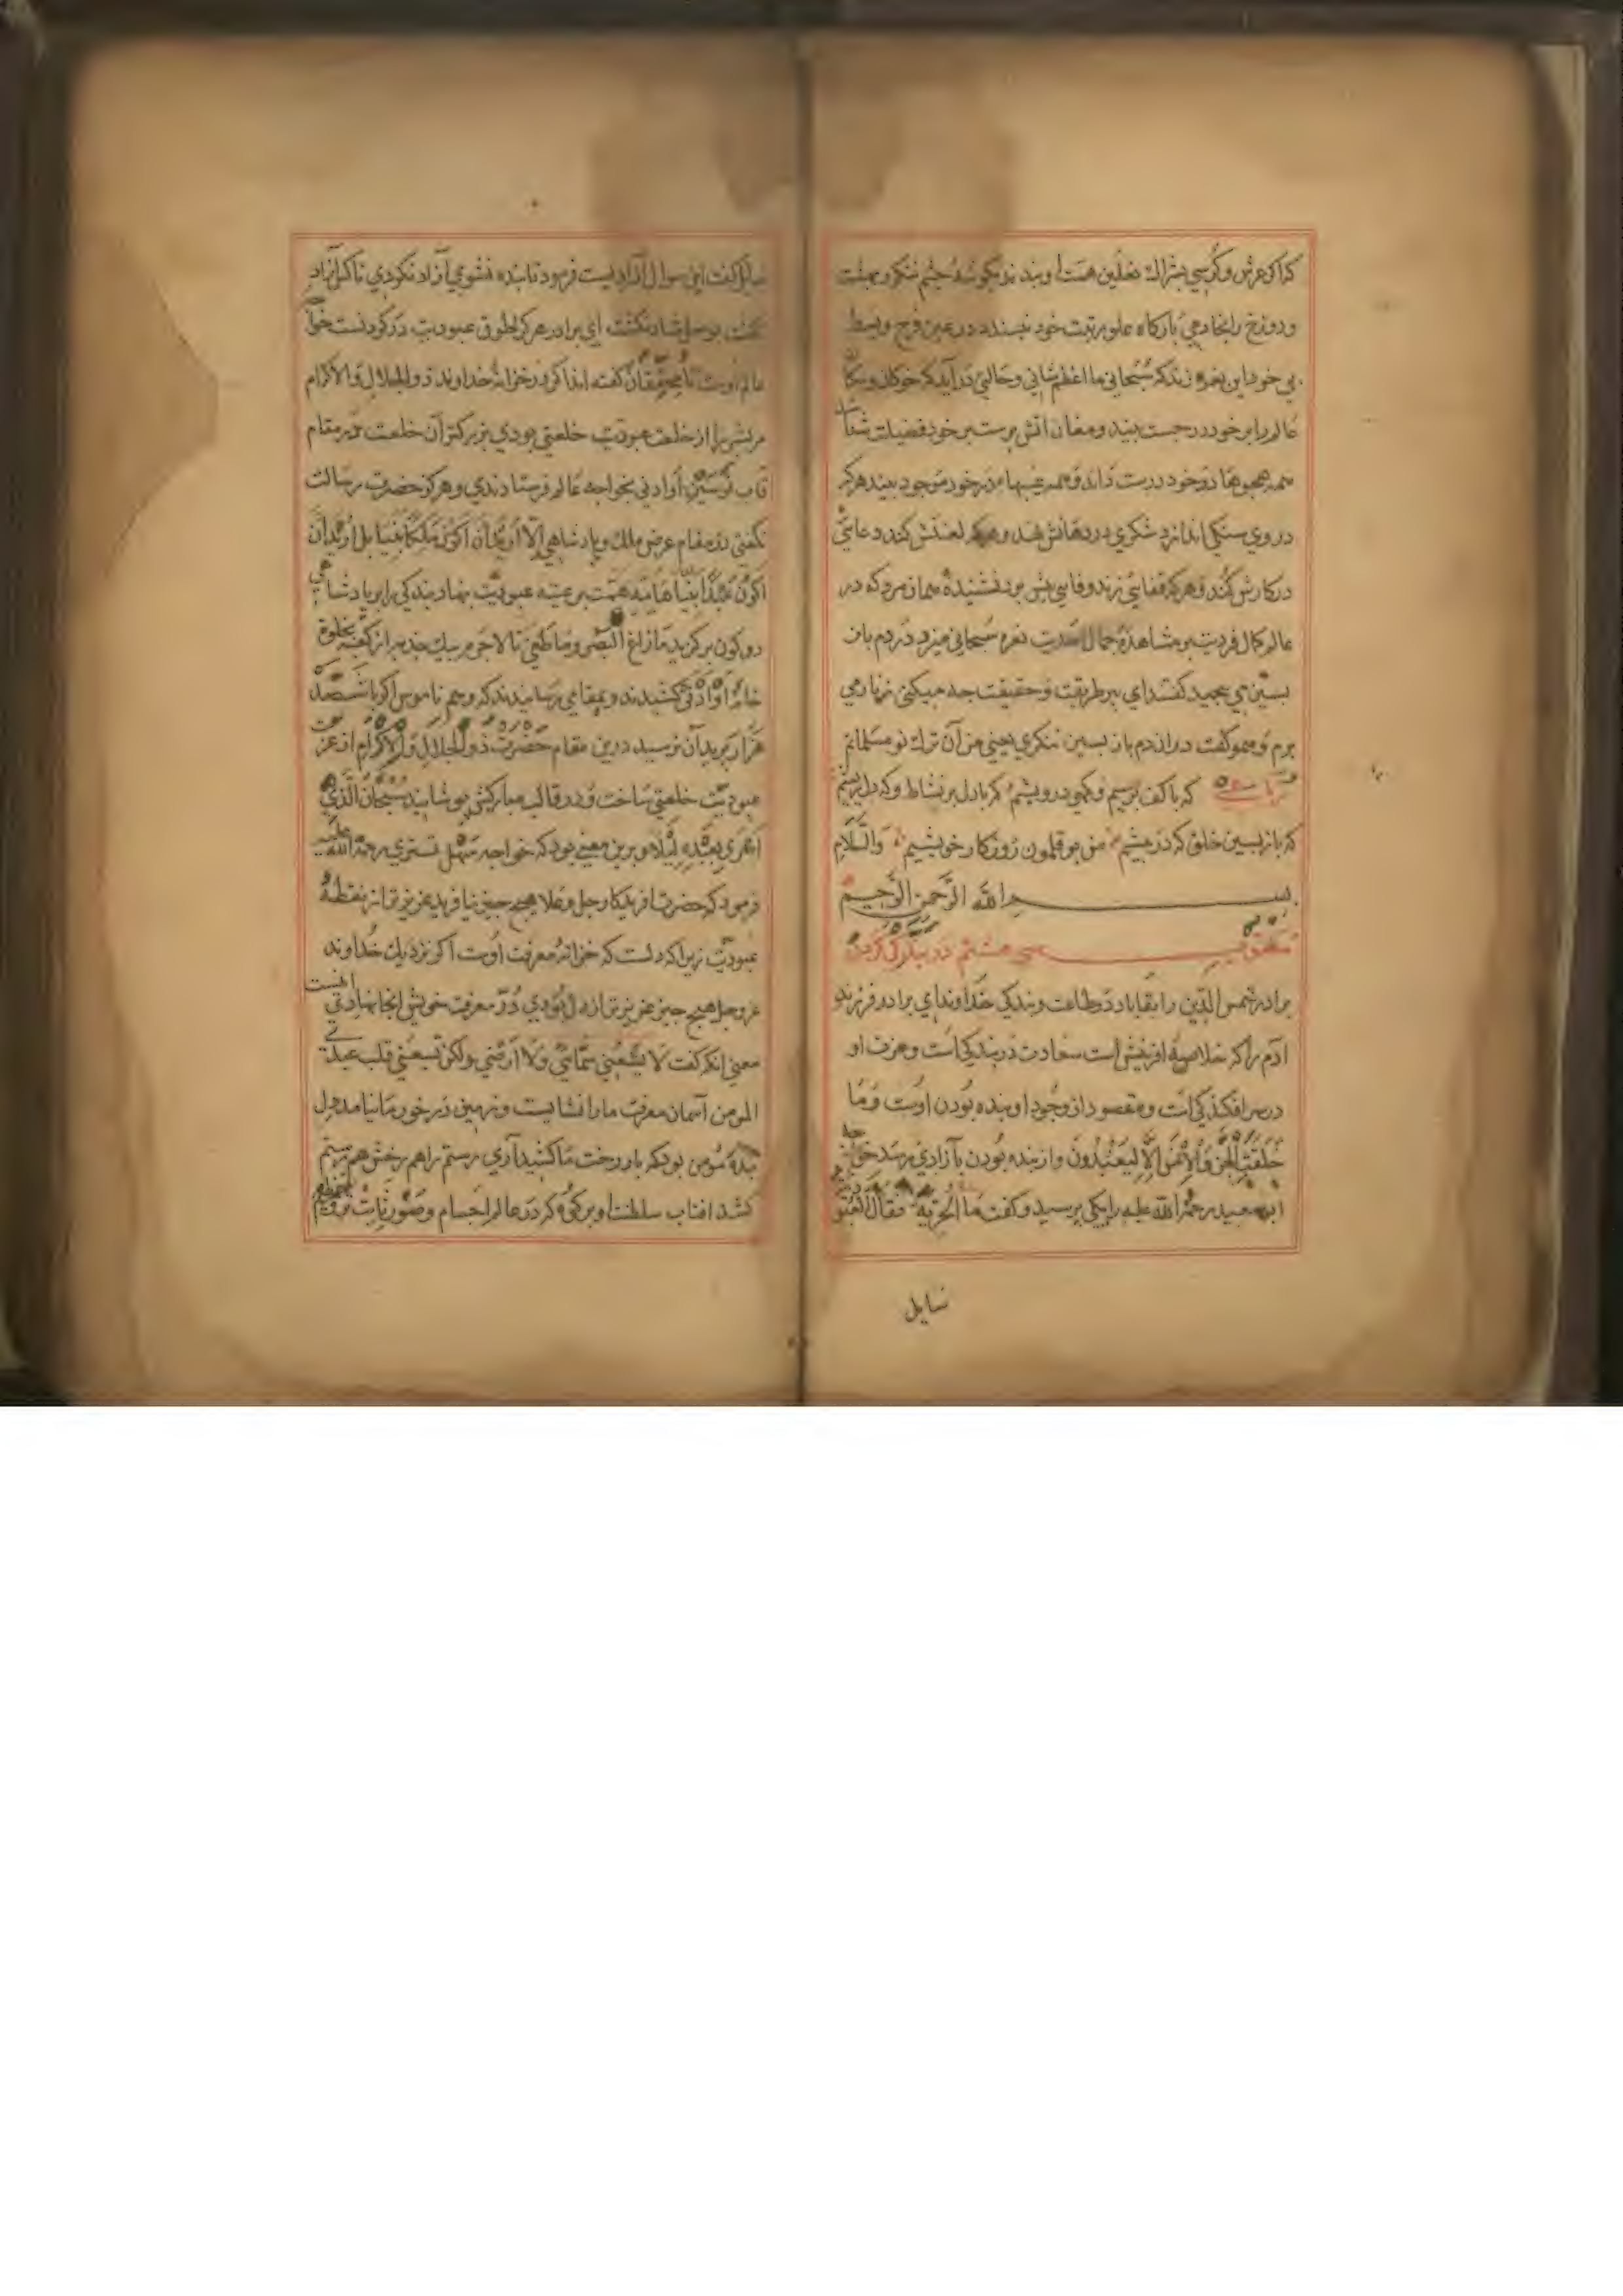 کذا کی عرش و کرسی بشراك نعلین همت او بندند بکوشهٔ چشم ننکرد بهشت
و دوزخ را بخادمی بارکاه علو مرتبت خود نپسندد در عین فرح و بسط
بی خود این نعره زند که سُبحانی ما اعظم شانی و حالتی در آید که خوکان و سکان
عالم را بر خود در جست بیند و مغان آتش پرست بر خود فضیلت
همه در خود درست داند و همه عیبها در خود موجود بیند هر که
در وی سنکی اندازد شکری در دهانش نهد و هر که لعنتش کند دعایی
در کارش کند و هر که قفایی زند پیش برد همان مرد که در
عالم کمال فردیت بر مشاهدهٔ جمال احدیت نعره سُبحانی میزد در دم باز
بسین می طریقت و حقیقت میکنی زنار می
برم و همو کفت در اندم باز بسین یعنی من آن ترك نو مسلمانم
رباعی که با کف پر سیم و کهی درویشم که با دل پر نشاط و که دل ریشم
که باز بسین خلق که در پیشم من بو قلمون روزکار خویشم والسّلام
بسم الله الرّحمن الرّحیم
مکتوب سی هشتم در بندکی کردن
برادر شمس الدّین را بقا باد در طاعت و بندکی خداوند ای برادر فرزند
آدم را که خلاصهٔ افرینش است سعادت در بندکی است و عز و شرف او
در سرافکندکی است و مقصود از وجود او بنده بُودن اوست وَمَا
خَلَقْتُ الْجِنَّ وَالْاِنْسَ اِلَّا لِیَعْبُدُونَ و از بنده بُودن بآزادی رسد خواجه
ابو سعید رحمة الله علیه را یکی پرسید و کفت مَا الْحُرِّیَّة فقال العُبُودیة
سایل
سایل کفت این سوال از آزادیست فرمود تا بنده نشوی آزاد نکردی تا کی آزاد
ای برادر هر که طوق عبودیت در کردنست خواجه
عالم اوست تا محقّقان کفته اند اکر در خزانهٔ خداوند ذوالجلال والاکرام
مر بشر را از خلعت عبودیت خلعتی بودی بزرکتر آن خلعت در مقام
قاب قوسین او ادنی بخواجه عالم فرستادندی و هرکز حضرت رسالت
نکفتی در مقام عرض ملك و پادشاهی لا اُرِیدُ اَن اَکُونَ مَلِکًا نَبِیًّا بل اُرِیدُ اَن
اَکُونَ عَبْدًا نَبِیًّا همّت بر عتبه عبودیّت بنهاد بندکی را بر پادشاهی
دو کون برکزید مَا زَاغَ الْبَصَرُ وَمَا طَغَی تا لاجرم بیك جذبه از کعبه بخلوت
خانهٔ اَوْ اَدْنَی کشیدند و بمقامی رسانیدند که وهم ناموس اکبر با ششصد
هزار پر بدان نرسید درین مقام حَضْرَت ذُوالجَلالِ وَالْاِکْرَام از عزت
عبودیّت خلعتی ساخت و در قالب مبارکش پوشانید سُبْحَانَ الَّذِی
اَسْرَی بِعَبْدِهِ لَیْلًا و برین معنی بود که خواجه سهل تستری رحمة الله علیه
فرمود که حضرت آفریدکار جل و علا هیچ چیز نیافرید عزیز تر از نقطهٔ
عبودیّت زیرا که دلست که خزانهٔ معرفت اوست اکر نزدیك خداوند
عز و جل هیچ چیز عزیز تر از دل بُودی دُرّ معرفت خویش آنجا نهادی اینست
معنی انکه کفت لَا یَسَعُنِی سَمَائِی وَلَا اَرْضِی وَلٰکِن یَسَعُنِی قلب عبدی
المومن آسمان معرفت ما را نشایست و زمین در خور ما نیامد دل
بندهٔ مومن بود که بار رخت ما کشید آری رستم را هم رخش هم رستم
کشد آفتاب سلطنت او بر کوه که در عالم اجسام و صور ثابت تر و